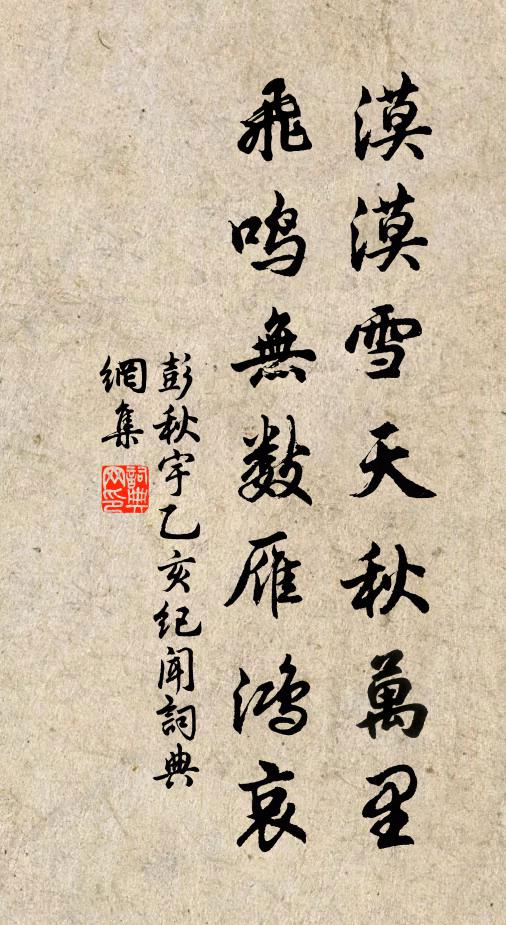 漠漠雪天秋萬里
飛鳴無數雁鴻哀
彭秋宇乙亥紀聞詞典
網集
詞典
网印